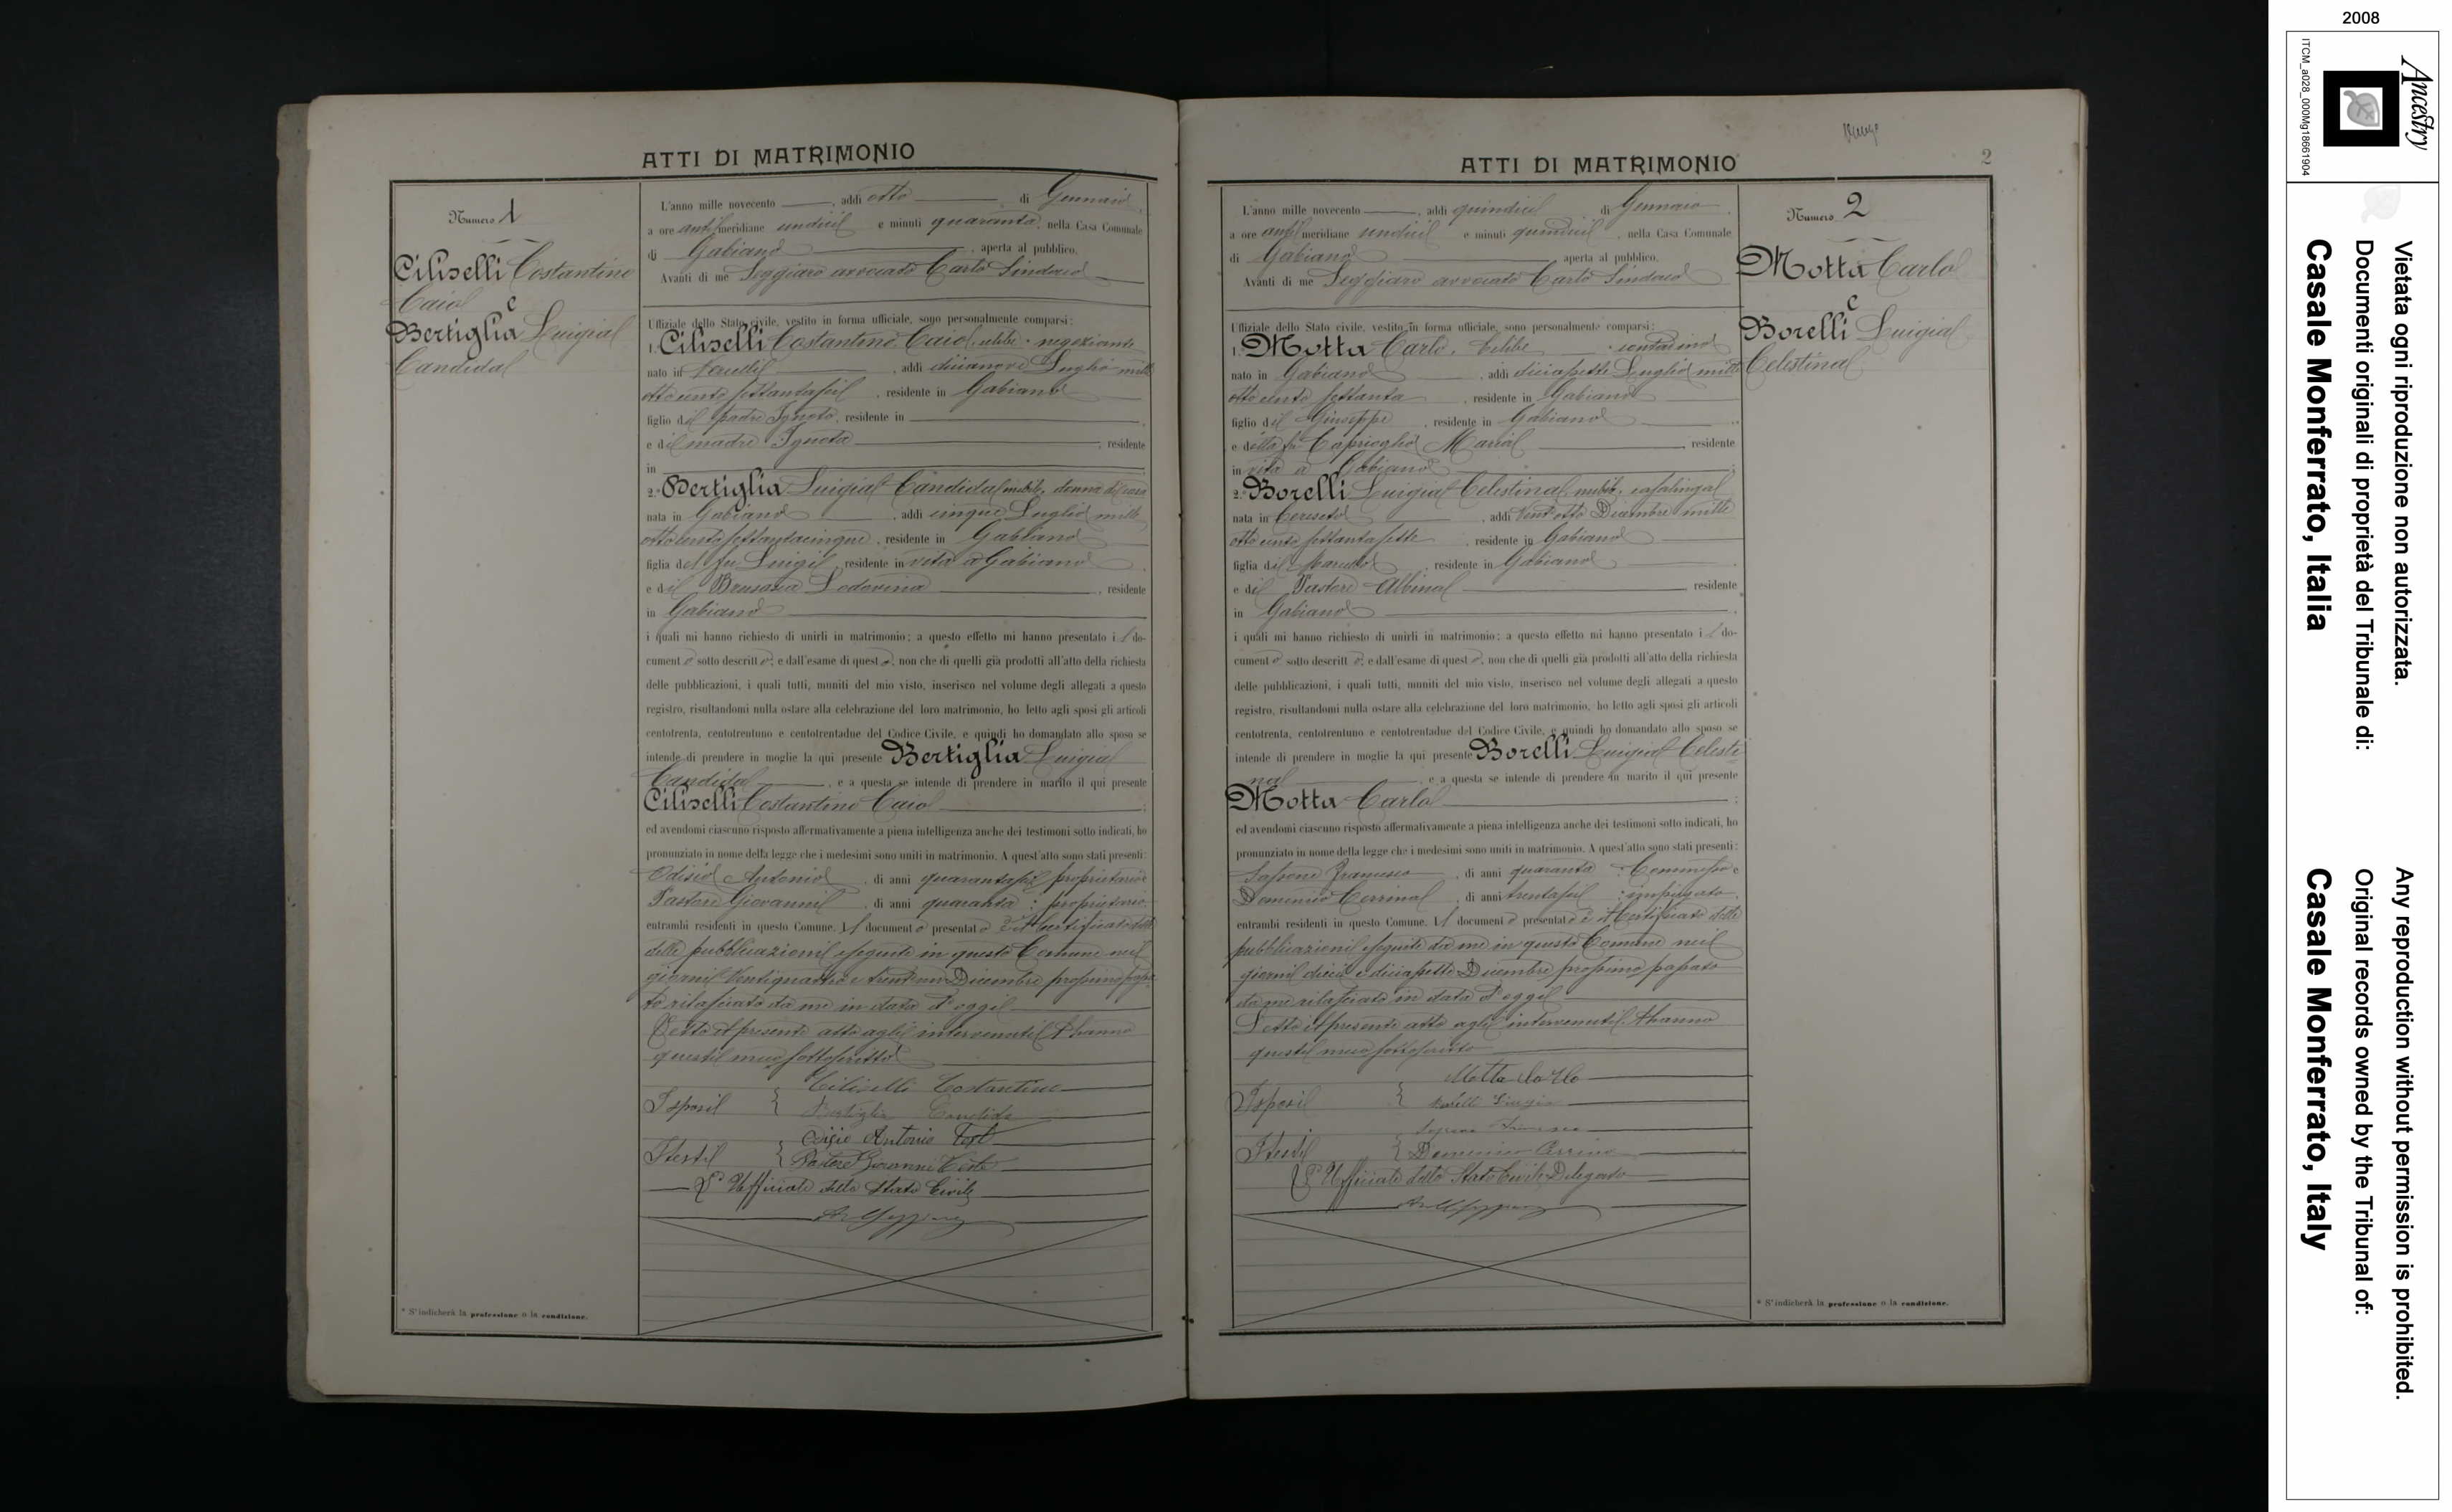 ATTI DI MATRIMONIO
Numero 1
Ciliselli Costantino
Caio
e
Bertiglia Luigia
Candida
L'anno mille novecento, addì otto di Gennaio,
a ore antimeridiane undici e minuti quaranta, nella Casa Comunale
di Gabiano, aperta al pubblico.
Avanti di me Seggiaro avvocato Carlo Sindaco
Uffiziale dello Stato civile, vestito in forma ufficiale, sono personalmente comparsi:
1. Ciliselli Costantino Caio, celibe, negoziante
nato in Vercelli, addì dicianove Luglio mille
ottocento settantasei, residente in Gabiano
figlio di padre Ignoto, residente in
e di madre Ignota, residente
in
2. Bertiglia Luigia Candida nubile, donna di casa
nata in Gabiano, addì cinque Luglio mille
ottocento settantacinque, residente in Gabiano
figlia del fu Luigi, residente in vita a Gabiano
e di Lodovina, residente
in Gabiano
i quali mi hanno richiesto di unirli in matrimonio; a questo effetto mi hanno presentato il do-
cumento sotto descritto; e dall'esame di questo, non che di quelli già prodotti all'atto della richiesta
delle pubblicazioni, i quali tutti, muniti del mio visto, inserisco nel volume degli allegati a questo
registro, risultandomi nulla ostare alla celebrazione del loro matrimonio, ho letto agli sposi gli articoli
centotrenta, centotrentuno e centotrentadue del Codice Civile, e quindi ho domandato allo sposo se
intende di prendere in moglie la qui presente Bertiglia Luigia
Candida, e a questa se intende di prendere in marito il qui presente
Ciliselli Costantino Caio;
ed avendomi ciascuno risposto affermativamente a piena intelligenza anche dei testimoni sotto indicati, ho
pronunziato in nome della legge che i medesimi sono uniti in matrimonio. A quest'atto sono stati presenti:
Odisio Antonio, di anni quarantasei proprietario e
Pastore Giovanni, di anni quaranta: proprietario
entrambi residenti in questo Comune. Il documento presentato è il Certificato delle
delle pubblicazioni eseguite in questo Comune nei
giorni Ventiquattro e trentuno Dicembre prossimo passa
to rilasciato da me in data d'oggi
Letto il presente atto agli intervenuti l'hanno
questi meco sottoscritto
I sposi { Ciliselli Costantino
Bertiglia Candida
I testi { Odisio Antonio Test
Pastore Giovanni Teste
L'Uffiziale dello Stato Civile
* S'indicherà la professione o la condizione.
ATTI DI MATRIMONIO
2
Numero 2
Motta Carlo
e
Borelli Luigia
Celestina
L'anno mille novecento, addì quindici di Gennaio,
a ore antimeridiane undici e minuti quindici, nella Casa Comunale
di Gabiano, aperta al pubblico.
Avanti di me Seggiaro avvocato Carlo Sindaco
Uffiziale dello Stato civile, vestito in forma ufficiale, sono personalmente comparsi:
1. Motta Carlo, Celibe, contadino
nato in Gabiano, addì diciasette Luglio mille
ottocento settanta, residente in Gabiano
figlio di Giuseppe, residente in Gabiano
e della fu Caprioglio Maria, residente
in vita a Gabiano;
2. Borelli Luigia Celestina nubile, casalinga
nata in Cereseto, addì Vent'otto Dicembre mille
ottocento settantasette, residente in Gabiano
figlia di, residente in Gabiano
e di Pastore Albina, residente
in Gabiano
i quali mi hanno richiesto di unirli in matrimonio; a questo effetto mi hanno presentato il do-
cumento sotto descritto; e dall'esame di questo, non che di quelli già prodotti all'atto della richiesta
delle pubblicazioni, i quali tutti, muniti del mio visto, inserisco nel volume degli allegati a questo
registro, risultandomi nulla ostare alla celebrazione del loro matrimonio, ho letto agli sposi gli articoli
centotrenta, centotrentuno e centotrentadue del Codice Civile, e quindi ho domandato allo sposo se
intende di prendere in moglie la qui presente Borelli Luigia Celesti
na, e a questa se intende di prendere in marito il qui presente
Motta Carlo;
ed avendomi ciascuno risposto affermativamente a piena intelligenza anche dei testimoni sotto indicati, ho
pronunziato in nome della legge che i medesimi sono uniti in matrimonio. A quest'atto sono stati presenti:
Sassone Francesco, di anni quaranta: Commesso e
Domenico Cerrina, di anni trentasei: impiegato
entrambi residenti in questo Comune. Il documento presentato è il Certificato delle
pubblicazioni eseguite da me in questo Comune nei
giorni dieci e diciasette Dicembre prossimo passato
da me rilasciato in data d'oggi
Letto il presente atto agli intervenuti l'hanno
questi meco sottoscritto
I sposi { Motta Carlo
Borelli Luigia
I testi {
Domenico Cerrina
L'Ufficiale dello Stato Civile Delegato
* S'indicherà la professione o la condizione.
2008
Ancestry
ITCM_a028_000Mg18661904
Vietata ogni riproduzione non autorizzata.
Documenti originali di proprietà del Tribunale di:
Casale Monferrato, Italia
Any reproduction without permission is prohibited.
Original records owned by the Tribunal of:
Casale Monferrato, Italy